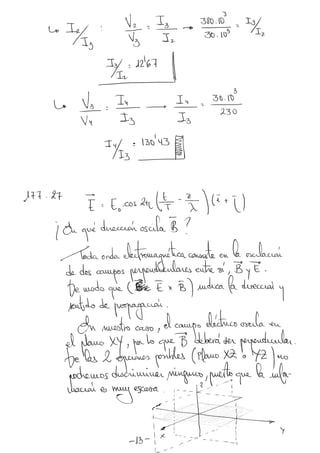 ↳ I₂/I₃ : V₂/V₃ = I₃/I₂ → 380·10³/30·10³ = I₃/I₂
I₃/I₂ = 12'67
↳ V₃/V₄ = I₄/I₃ → I₄/I₃ = 30·10³/230
I₄/I₃ = 130'43
177.27
E = E₀ cos 2π (t/T - z/λ) (i + j)
¿En qué dirección oscila B?
Toda onda electromagnética consiste en la oscilación
de dos campos perpendiculares entre sí, B y E.
De modo que (E × B) indica la dirección y
sentido de propagación.
En nuestro caso, el campo eléctrico oscila en
el plano XY, por lo que B deberá ser perpendicular.
De las 2 opciones posibles (plano XZ o YZ) no
podemos discriminar ninguno, puesto que la infor-
mación es muy escasa.
z
y
x
-13-